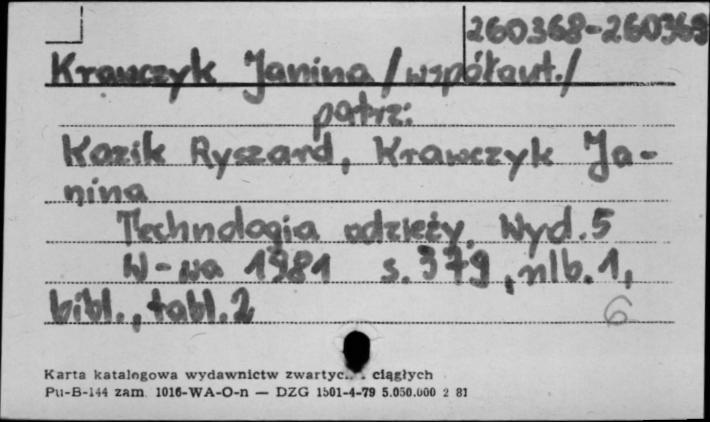 260368-260369
Krawczyk Janina /współaut./
patrz:
Kozik Ryszard, Krawczyk Ja-
nina
Technologia odzieży. Wyd. 5
W-wa 1981 s. 379, nlb. 1,
bibl., tabl. 2
6
Karta katalogowa wydawnictw ciągłych
Pu-B-144 zam. 1016-WA-O-n — DZG 1501-4-79 5.050.000 2 81